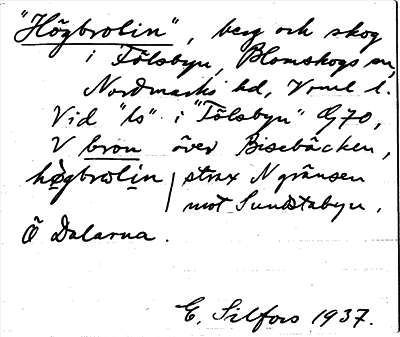 "Högbrolin", berg och skog
i Fölsbyn, Blomskogs sn,
Nordmarks hd, Vrml l.
Vid "ls" i "Fölsbyn" G70,
V bron över Bisebäcken,
högbrolin | strax N gränsen
mot Sundstabyn.
Ö Dalarna.
E. Silfors 1937.